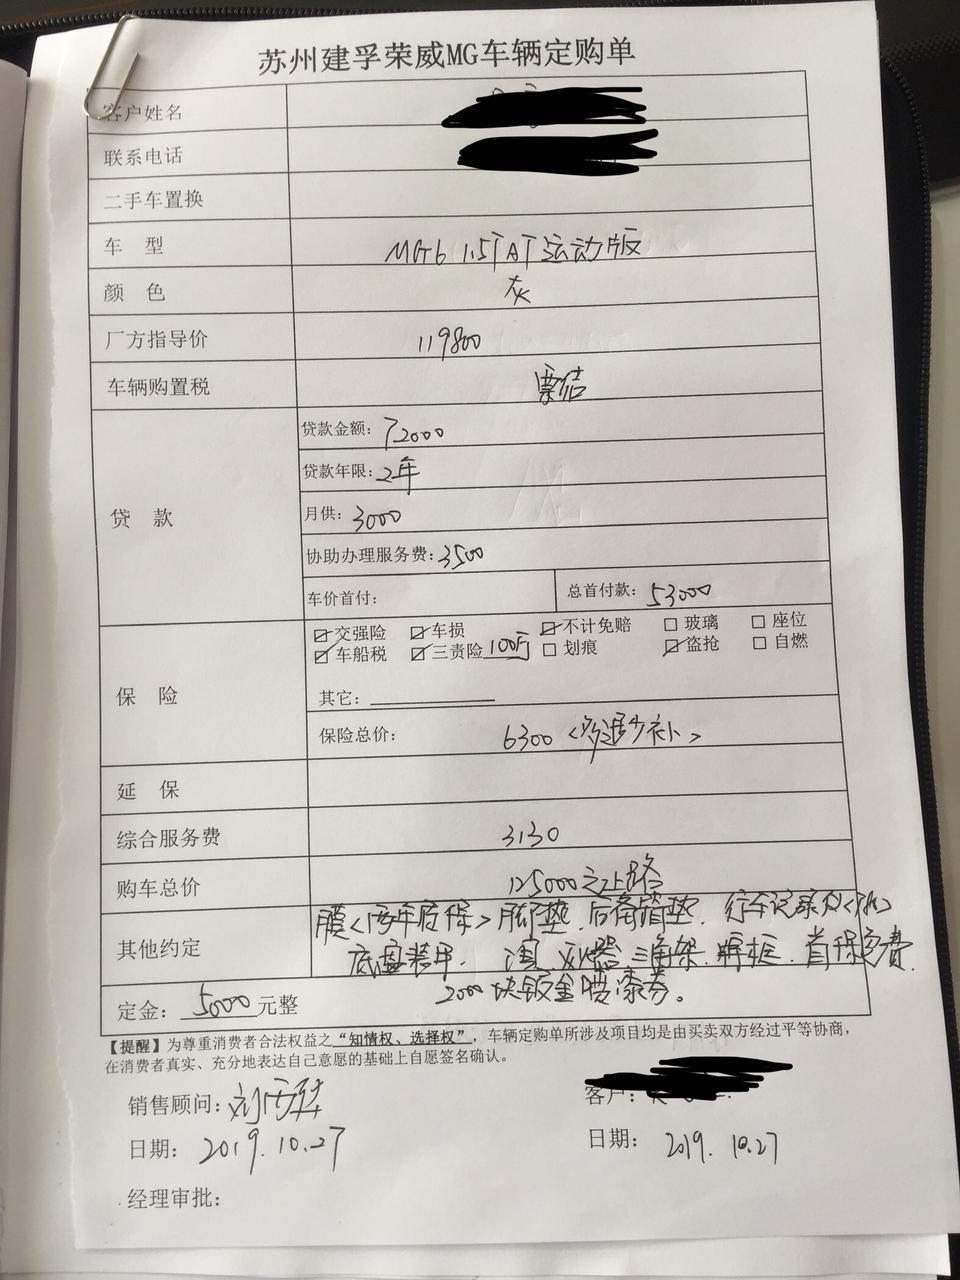 苏州建孚荣威MG车辆定购单
客户姓名
联系电话
二手车置换
车 型 MG6 1.5T AT 运动版
颜 色 灰
厂方指导价 119800
车辆购置税 票结
贷 款
贷款金额: 72000
贷款年限: 2年
月供: 3000
协助办理服务费: 3500
车价首付: 总首付款: 53000
保 险
☑交强险 ☑车损 ☑不计免赔 □玻璃 □座位
☑车船税 ☑三责险100万 □划痕 ☑盗抢 □自燃
其它:
保险总价: 6300 <多退少补>
延 保
综合服务费 3130
购车总价 125000
其他约定 膜<两年质保> 脚垫. 后备箱垫. 行车记录仪
底盘装甲. 灭火器. 三角架. 牌框. 首保免费.
2000块钣金喷漆券。
定金: 5000 元整
【提醒】为尊重消费者合法权益之“知情权、选择权”,车辆定购单所涉及项目均是由买卖双方经过平等协商,
在消费者真实、充分地表达自己意愿的基础上自愿签名确认。
销售顾问: 客户:
日期: 2019.10.27 日期: 2019.10.27
经理审批: